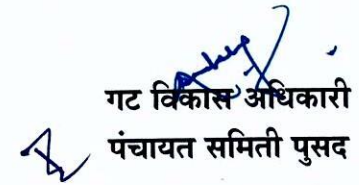 गट विकास अधिकारी
पंचायत समिती पुसद